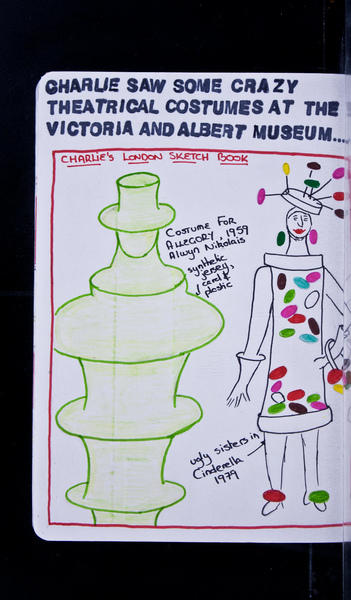 CHARLIE SAW SOME CRAZY
THEATRICAL COSTUMES AT THE
VICTORIA AND ALBERT MUSEUM....
CHARLIE'S LONDON SKETCH BOOK
COSTUME FOR
ALLEGORY, 1959
Alwyn Nikolais
synthetic
jersey,
card &
plastic
ugly sisters in
Cinderella
1979